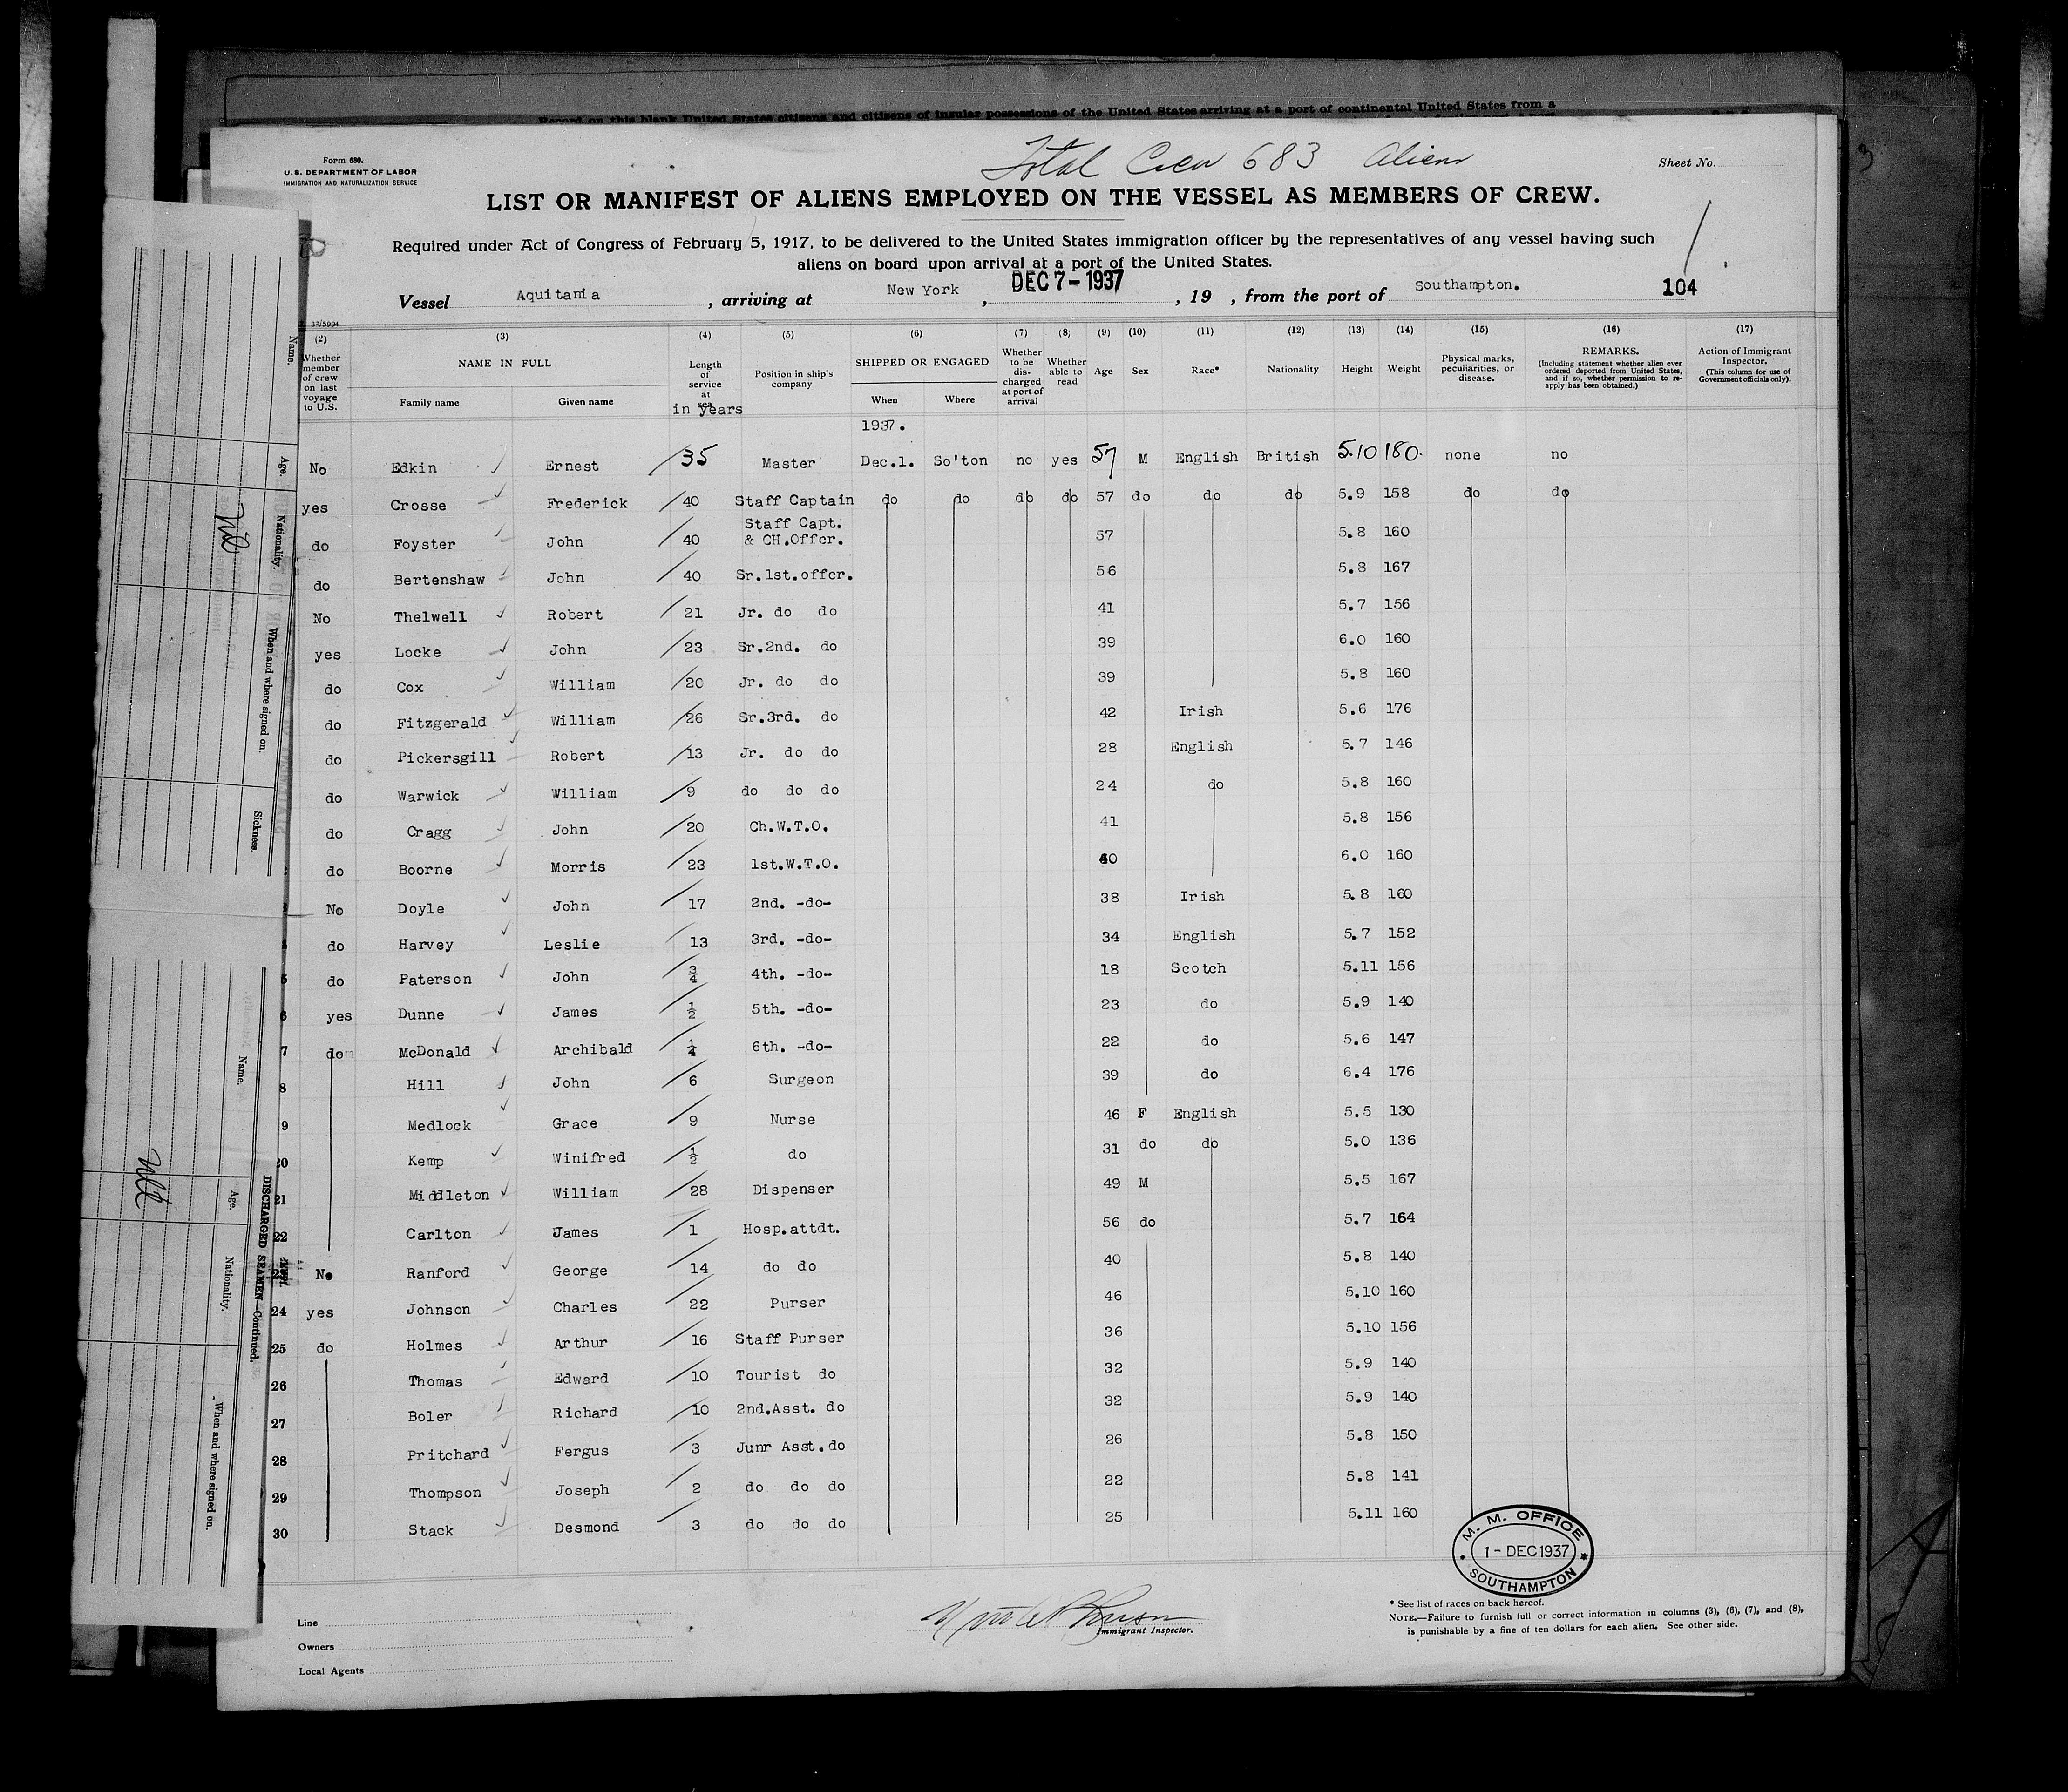 Record on this blank United States citizens and citizens of insular possessions of the United States arriving at a port of continental United States from a
Form 680.
U.S. DEPARTMENT OF LABOR
IMMIGRATION AND NATURALIZATION SERVICE
Total Crew 683 Aliens
Sheet No.
3
LIST OR MANIFEST OF ALIENS EMPLOYED ON THE VESSEL AS MEMBERS OF CREW.
Required under Act of Congress of February 5, 1917, to be delivered to the United States immigration officer by the representatives of any vessel having such
aliens on board upon arrival at a port of the United States.
Vessel Aquitania , arriving at New York , DEC 7 - 1937 , 19 , from the port of Southampton. 104
(2) (3) (4) (5) (6) (7) (8) (9) (10) (11) (12) (13) (14) (15) (16) (17)
Whether member of crew on last voyage to U.S.
NAME IN FULL
Family name Given name
Length of service at sea
in years
Position in ship's company
SHIPPED OR ENGAGED
When Where
Whether to be discharged at port of arrival
Whether able to read
Age Sex Race* Nationality Height Weight
Physical marks, peculiarities, or disease.
REMARKS.
(Including statement whether alien ever ordered deported from United States, and if so, whether permission to re-apply has been obtained.)
Action of Immigrant Inspector.
(This column for use of Government officials only).
1937.
No Edkin Ernest 35 Master Dec.1. So'ton no yes 57 M English British 5.10 180. none no
yes Crosse Frederick 40 Staff Captain do do do do 57 do do do 5.9 158 do do
do Foyster John 40 Staff Capt. & CH.Offcr. 57 5.8 160
do Bertenshaw John 40 Sr.1st.offcr. 56 5.8 167
No Thelwell Robert 21 Jr. do do 41 5.7 156
yes Locke John 23 Sr.2nd. do 39 6.0 160
do Cox William 20 Jr. do do 39 5.8 160
do Fitzgerald William 26 Sr.3rd. do 42 Irish 5.6 176
do Pickersgill Robert 13 Jr. do do 28 English 5.7 146
do Warwick William 9 do do do 24 do 5.8 160
do Cragg John 20 Ch.W.T.O. 41 5.8 156
do Boorne Morris 23 1st.W.T.O. 40 6.0 160
No Doyle John 17 2nd. -do- 38 Irish 5.8 160
do Harvey Leslie 13 3rd. -do- 34 English 5.7 152
5 do Paterson John 3/4 4th. -do- 18 Scotch 5.11 156
6 yes Dunne James 1/2 5th. -do- 23 do 5.9 140
7 do McDonald Archibald 1/4 6th. -do- 22 do 5.6 147
8 Hill John 6 Surgeon 39 do 6.4 176
9 Medlock Grace 9 Nurse 46 F English 5.5 130
20 Kemp Winifred 1/2 do 31 do do 5.0 136
21 Middleton William 28 Dispenser 49 M 5.5 167
22 Carlton James 1 Hosp.attdt. 56 do 5.7 164
23 No Ranford George 14 do do 40 5.8 140
24 yes Johnson Charles 22 Purser 46 5.10 160
25 do Holmes Arthur 16 Staff Purser 36 5.10 156
26 Thomas Edward 10 Tourist do 32 5.9 140
27 Boler Richard 10 2nd.Asst. do 32 5.9 140
28 Pritchard Fergus 3 Junr Asst.do 26 5.8 150
29 Thompson Joseph 2 do do do 22 5.8 141
30 Stack Desmond 3 do do do 25 5.11 160
M. M. OFFICE
1 - DEC 1937
SOUTHAMPTON
Line
Owners
Local Agents
Immigrant Inspector.
* See list of races on back hereof.
NOTE.—Failure to furnish full or correct information in columns (3), (6), (7), and (8),
is punishable by a fine of ten dollars for each alien. See other side.
Name.
Age.
Nationality.
When and where signed on.
Sickness.
DISCHARGED SEAMEN—Continued.
Name.
Age.
Nationality.
When and where signed on.